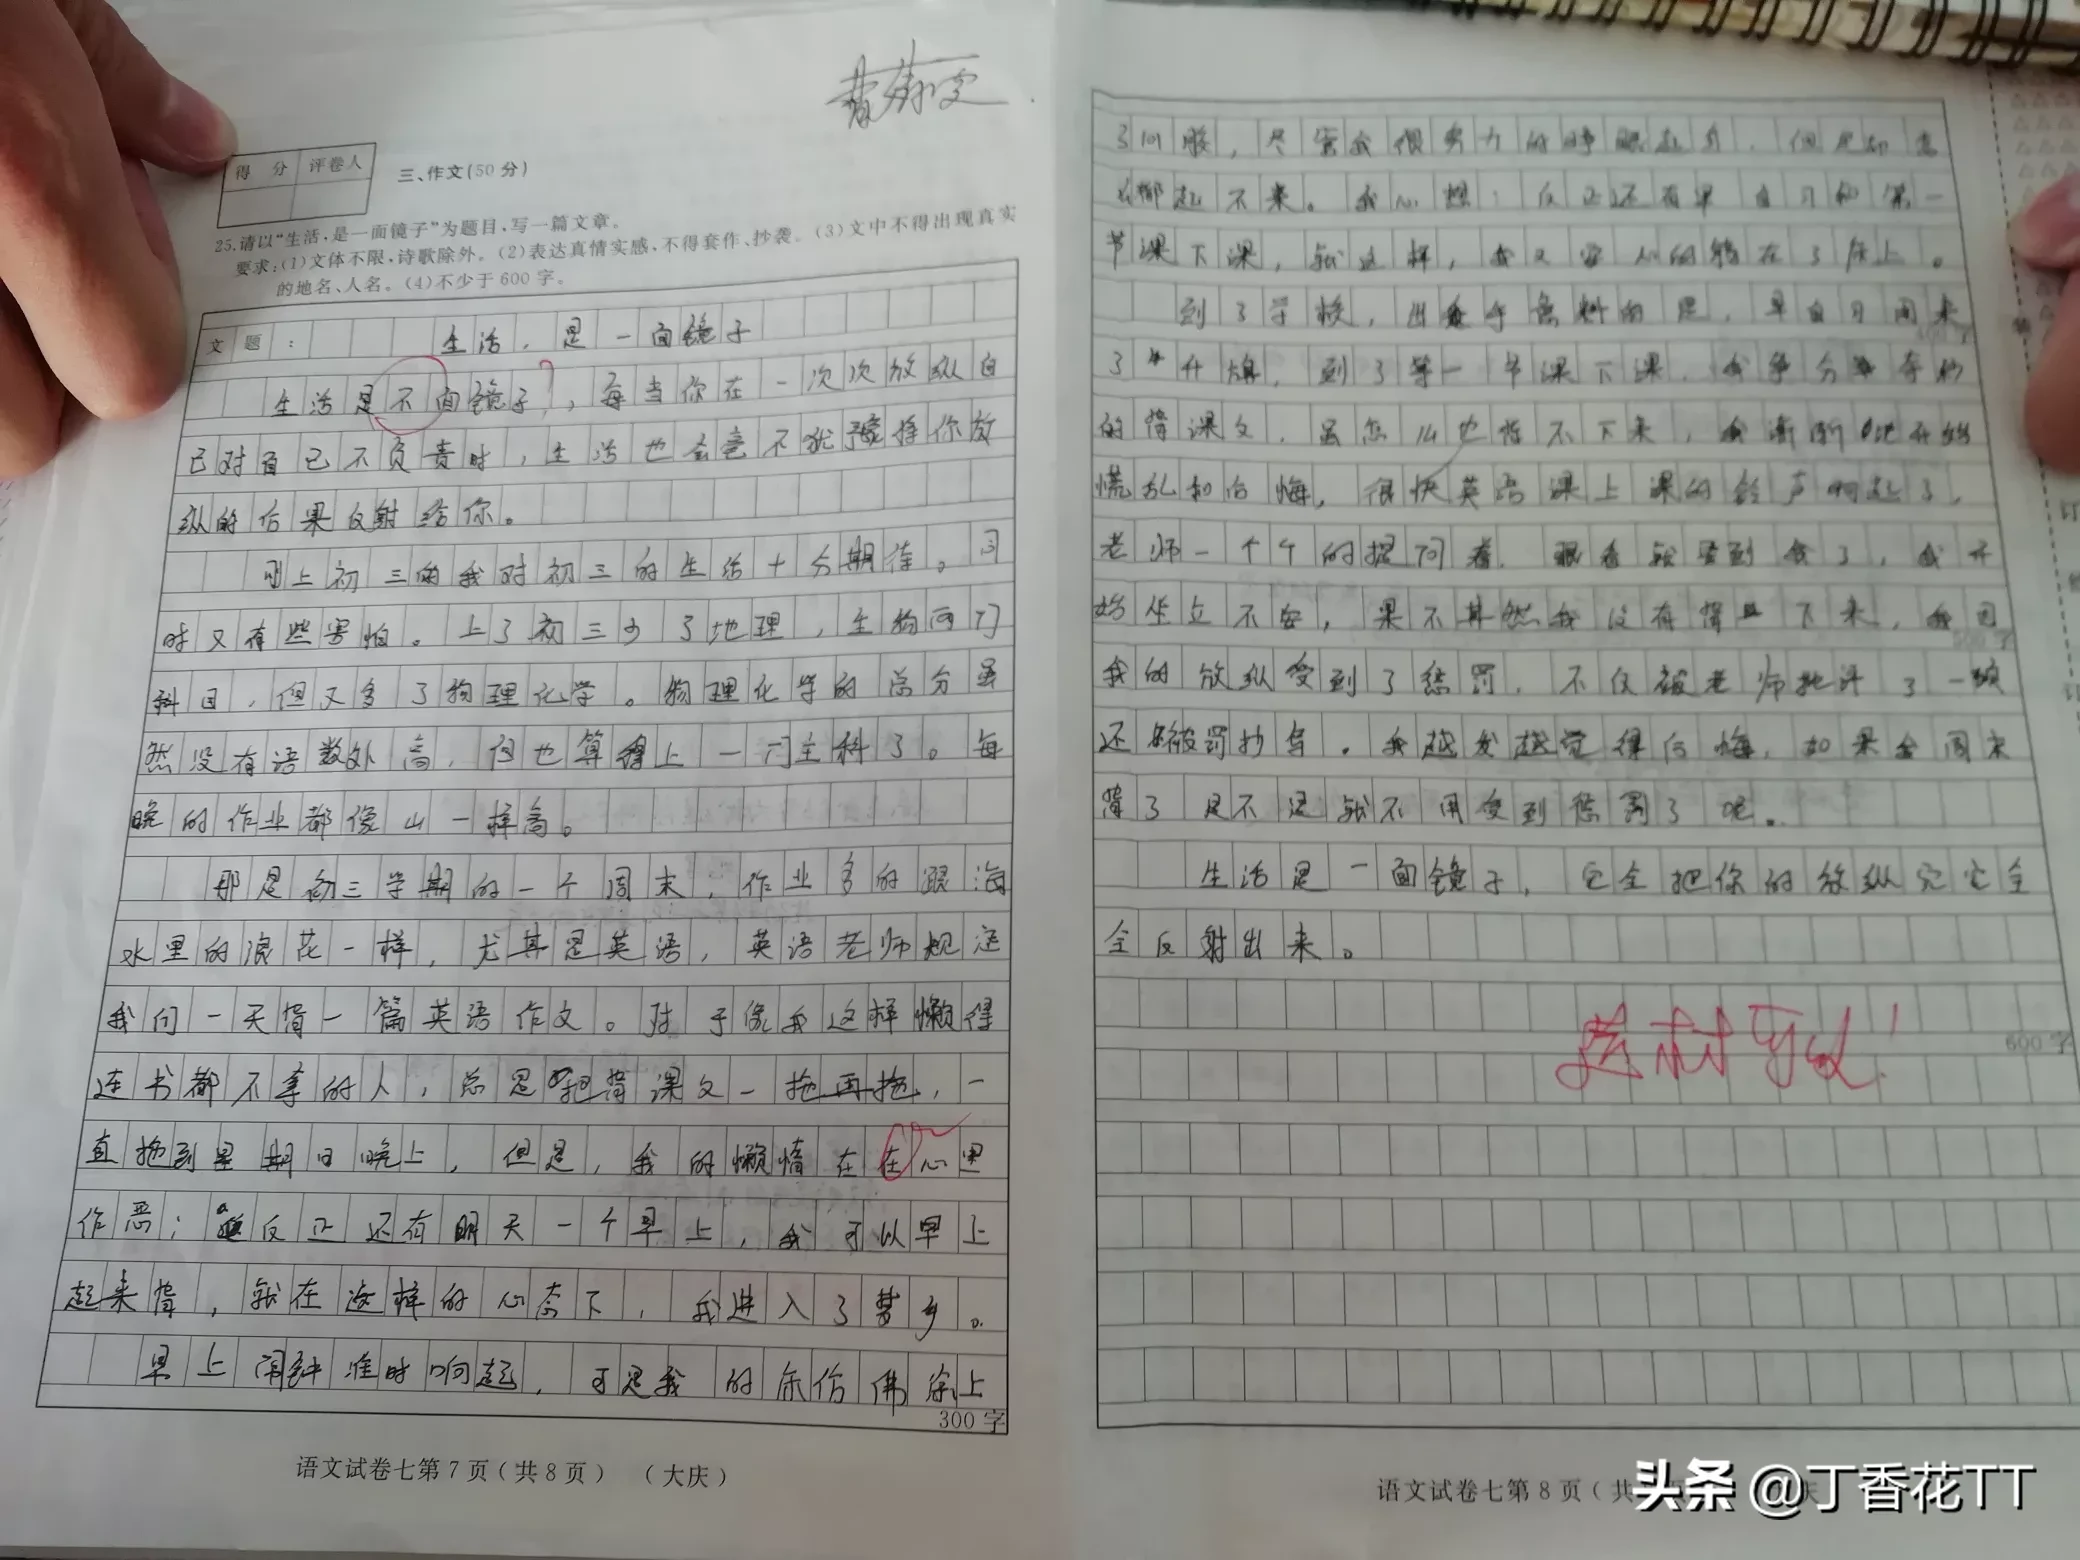 得 分 评卷人
三、作文(50分)
25.请以“生活,是一面镜子”为题目,写一篇文章。
要求:(1)文体不限,诗歌除外。(2)表达真情实感,不得套作、抄袭。(3)文中不得出现真实
的地名、人名。(4)不少于600字。
文题: 生活,是一面镜子
生活是不面镜子?,每当你在一次次放纵自
己对自己不负责时,生活也会毫不犹豫将你放
纵的后果反射给你。
刚上初三的我对初三的生活十分期待。同
时又有些害怕。上了初三少了地理,生物两门
科目,但又多了物理化学。物理化学的总分虽
然没有语数外高,但也算得上一门主科了。每
晚的作业都像山一样高。
那是初三学期的一个周末,作业多的跟海
水里的浪花一样,尤其是英语,英语老师规定
我们一天背一篇英语作文。对于像我这样懒得
连书都不拿的人,总是把背课文一拖再拖,一
直拖到星期日晚上,但是,我的懒惰在在心里
作恶;反正还有明天一个早上,我可以早上
起来背,就在这样的心态下,我进入了梦乡。
早上闹钟准时响起,可是我的床仿佛涂上
300字
语文试卷七第7页(共8页) (大庆)
了502胶,尽管我很努力的睁眼起身,但是却怎
么都起不来。我心想:反正还有早自习和第一
节课下课,就这样,我又安心的躺在了床上。
到了学校,出乎意料的是,早自习周末
了升旗,到了第一节课下课,我争分夺秒
的背课文,虽怎么也背不下来,我渐渐地开始
慌乱和后悔,很快英语课上课的铃声响起了,
老师一个个的提问着,眼看就要到我了,我开
始坐立不安,果不其然我没有背下来,我因
我的放纵受到了惩罚,不仅被老师批评了一顿
还被罚抄写。我越发越觉得后悔,如果周末
背了是不是就不用受到惩罚了呢。
生活是一面镜子,它会把你的放纵完完全
全反射出来。
选材可以!
600字
语文试卷七第8页(共
头条 @丁香花TT